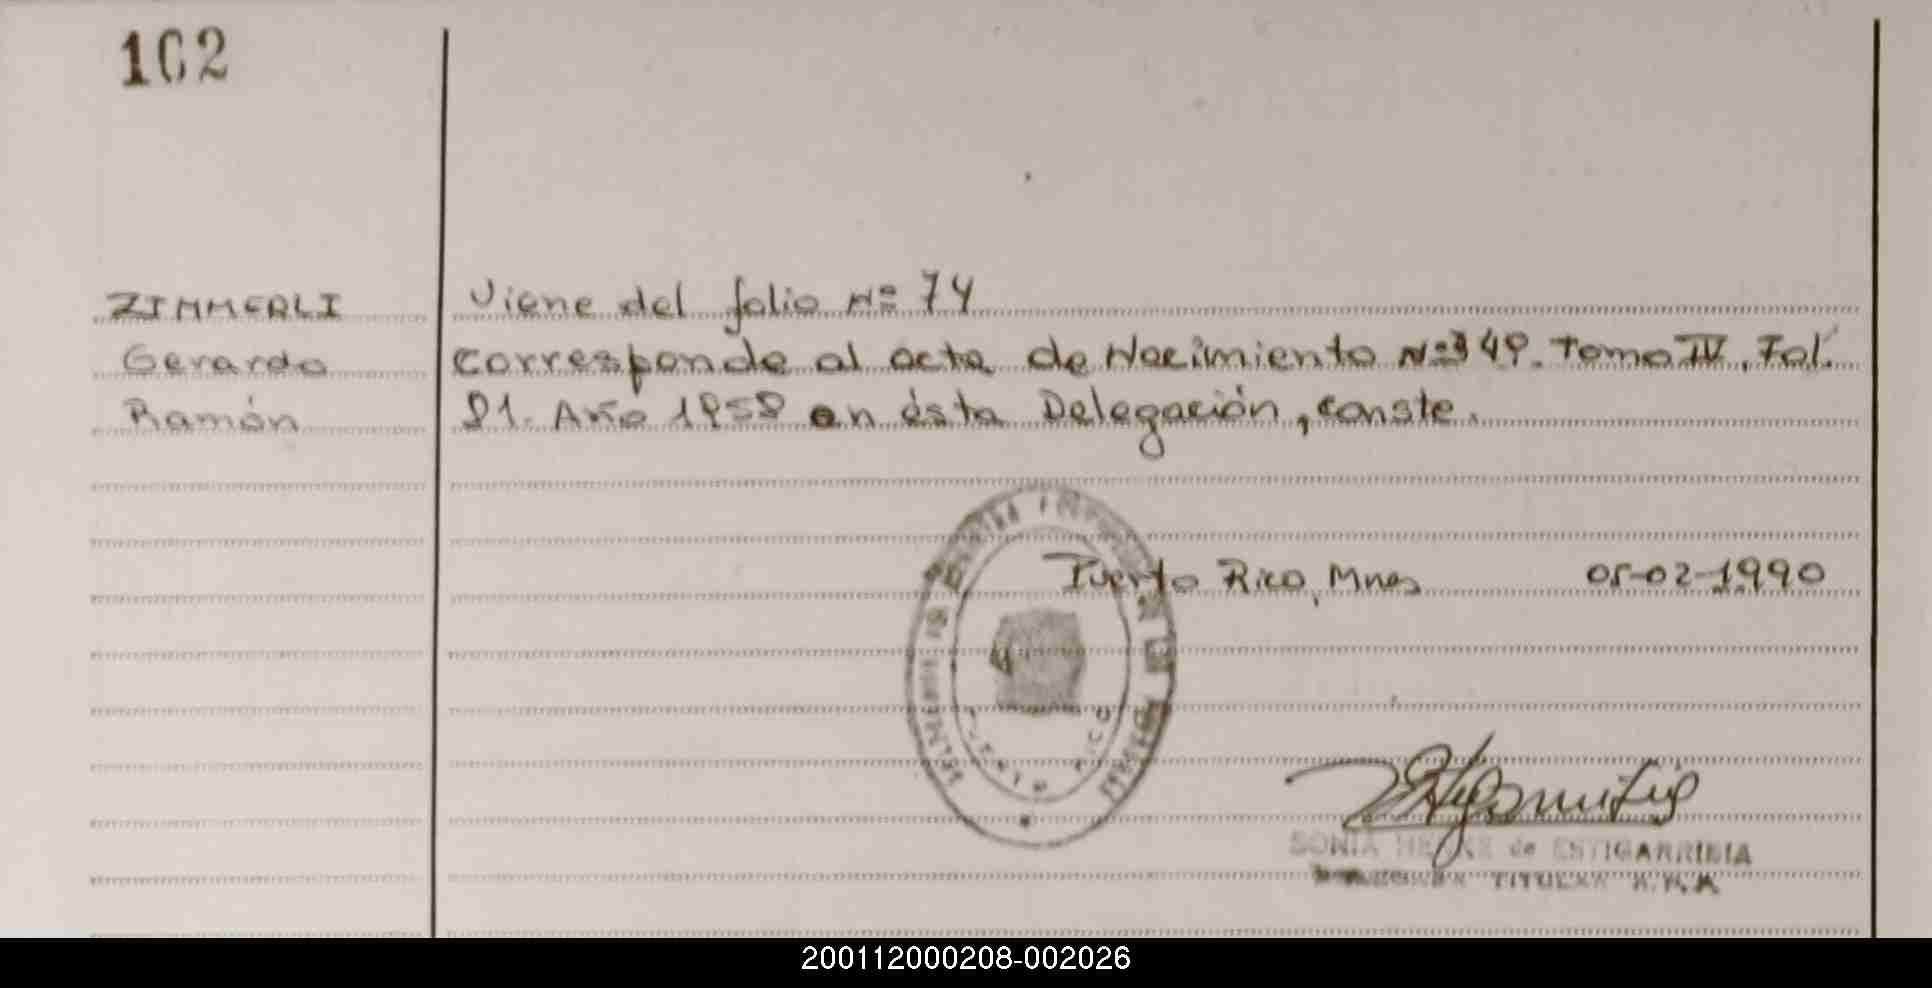 102
ZIMMERLI
Gerardo
Ramón
Viene del folio Nº 74
corresponde al acta de Nacimiento Nº 349. Tomo IV. Fol.
91. Año 1959 en ésta Delegación, conste.
Puerto Rico, Mnes 05-02-1990
PUERTO RICO
SONIA de ESTIGARRIBIA
TITULAR
200112000208-002026